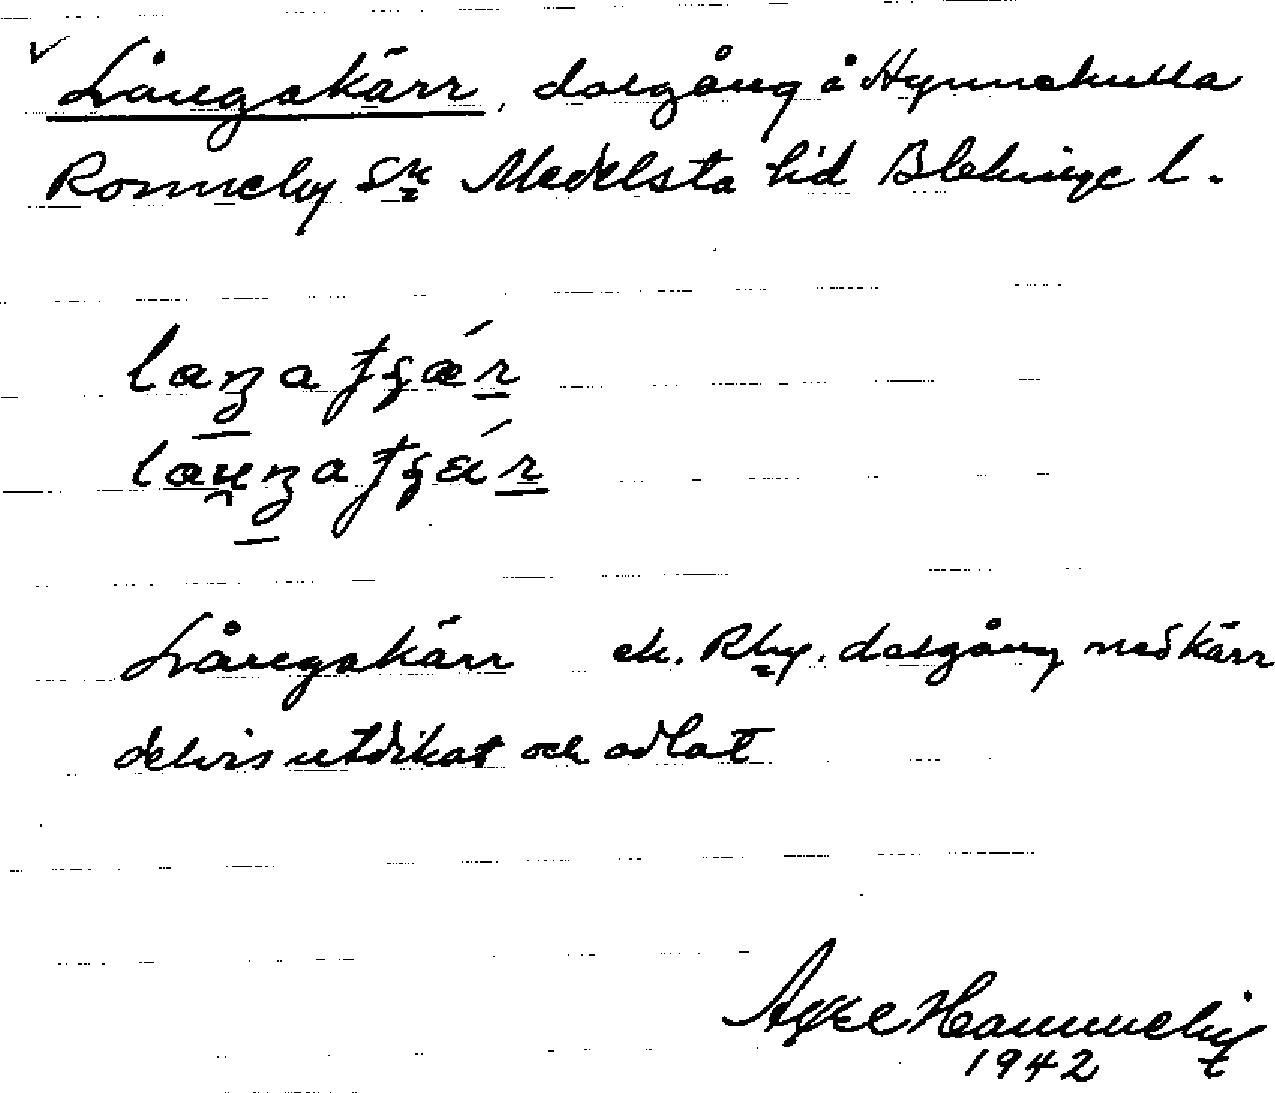 Långakärr, dalgång å Hynnekulla
Ronneby sn Medelsta hd Blekinge l.
Långakärr ek. Rby. dalgång med kärr
delvis utdikat och odlat
1942